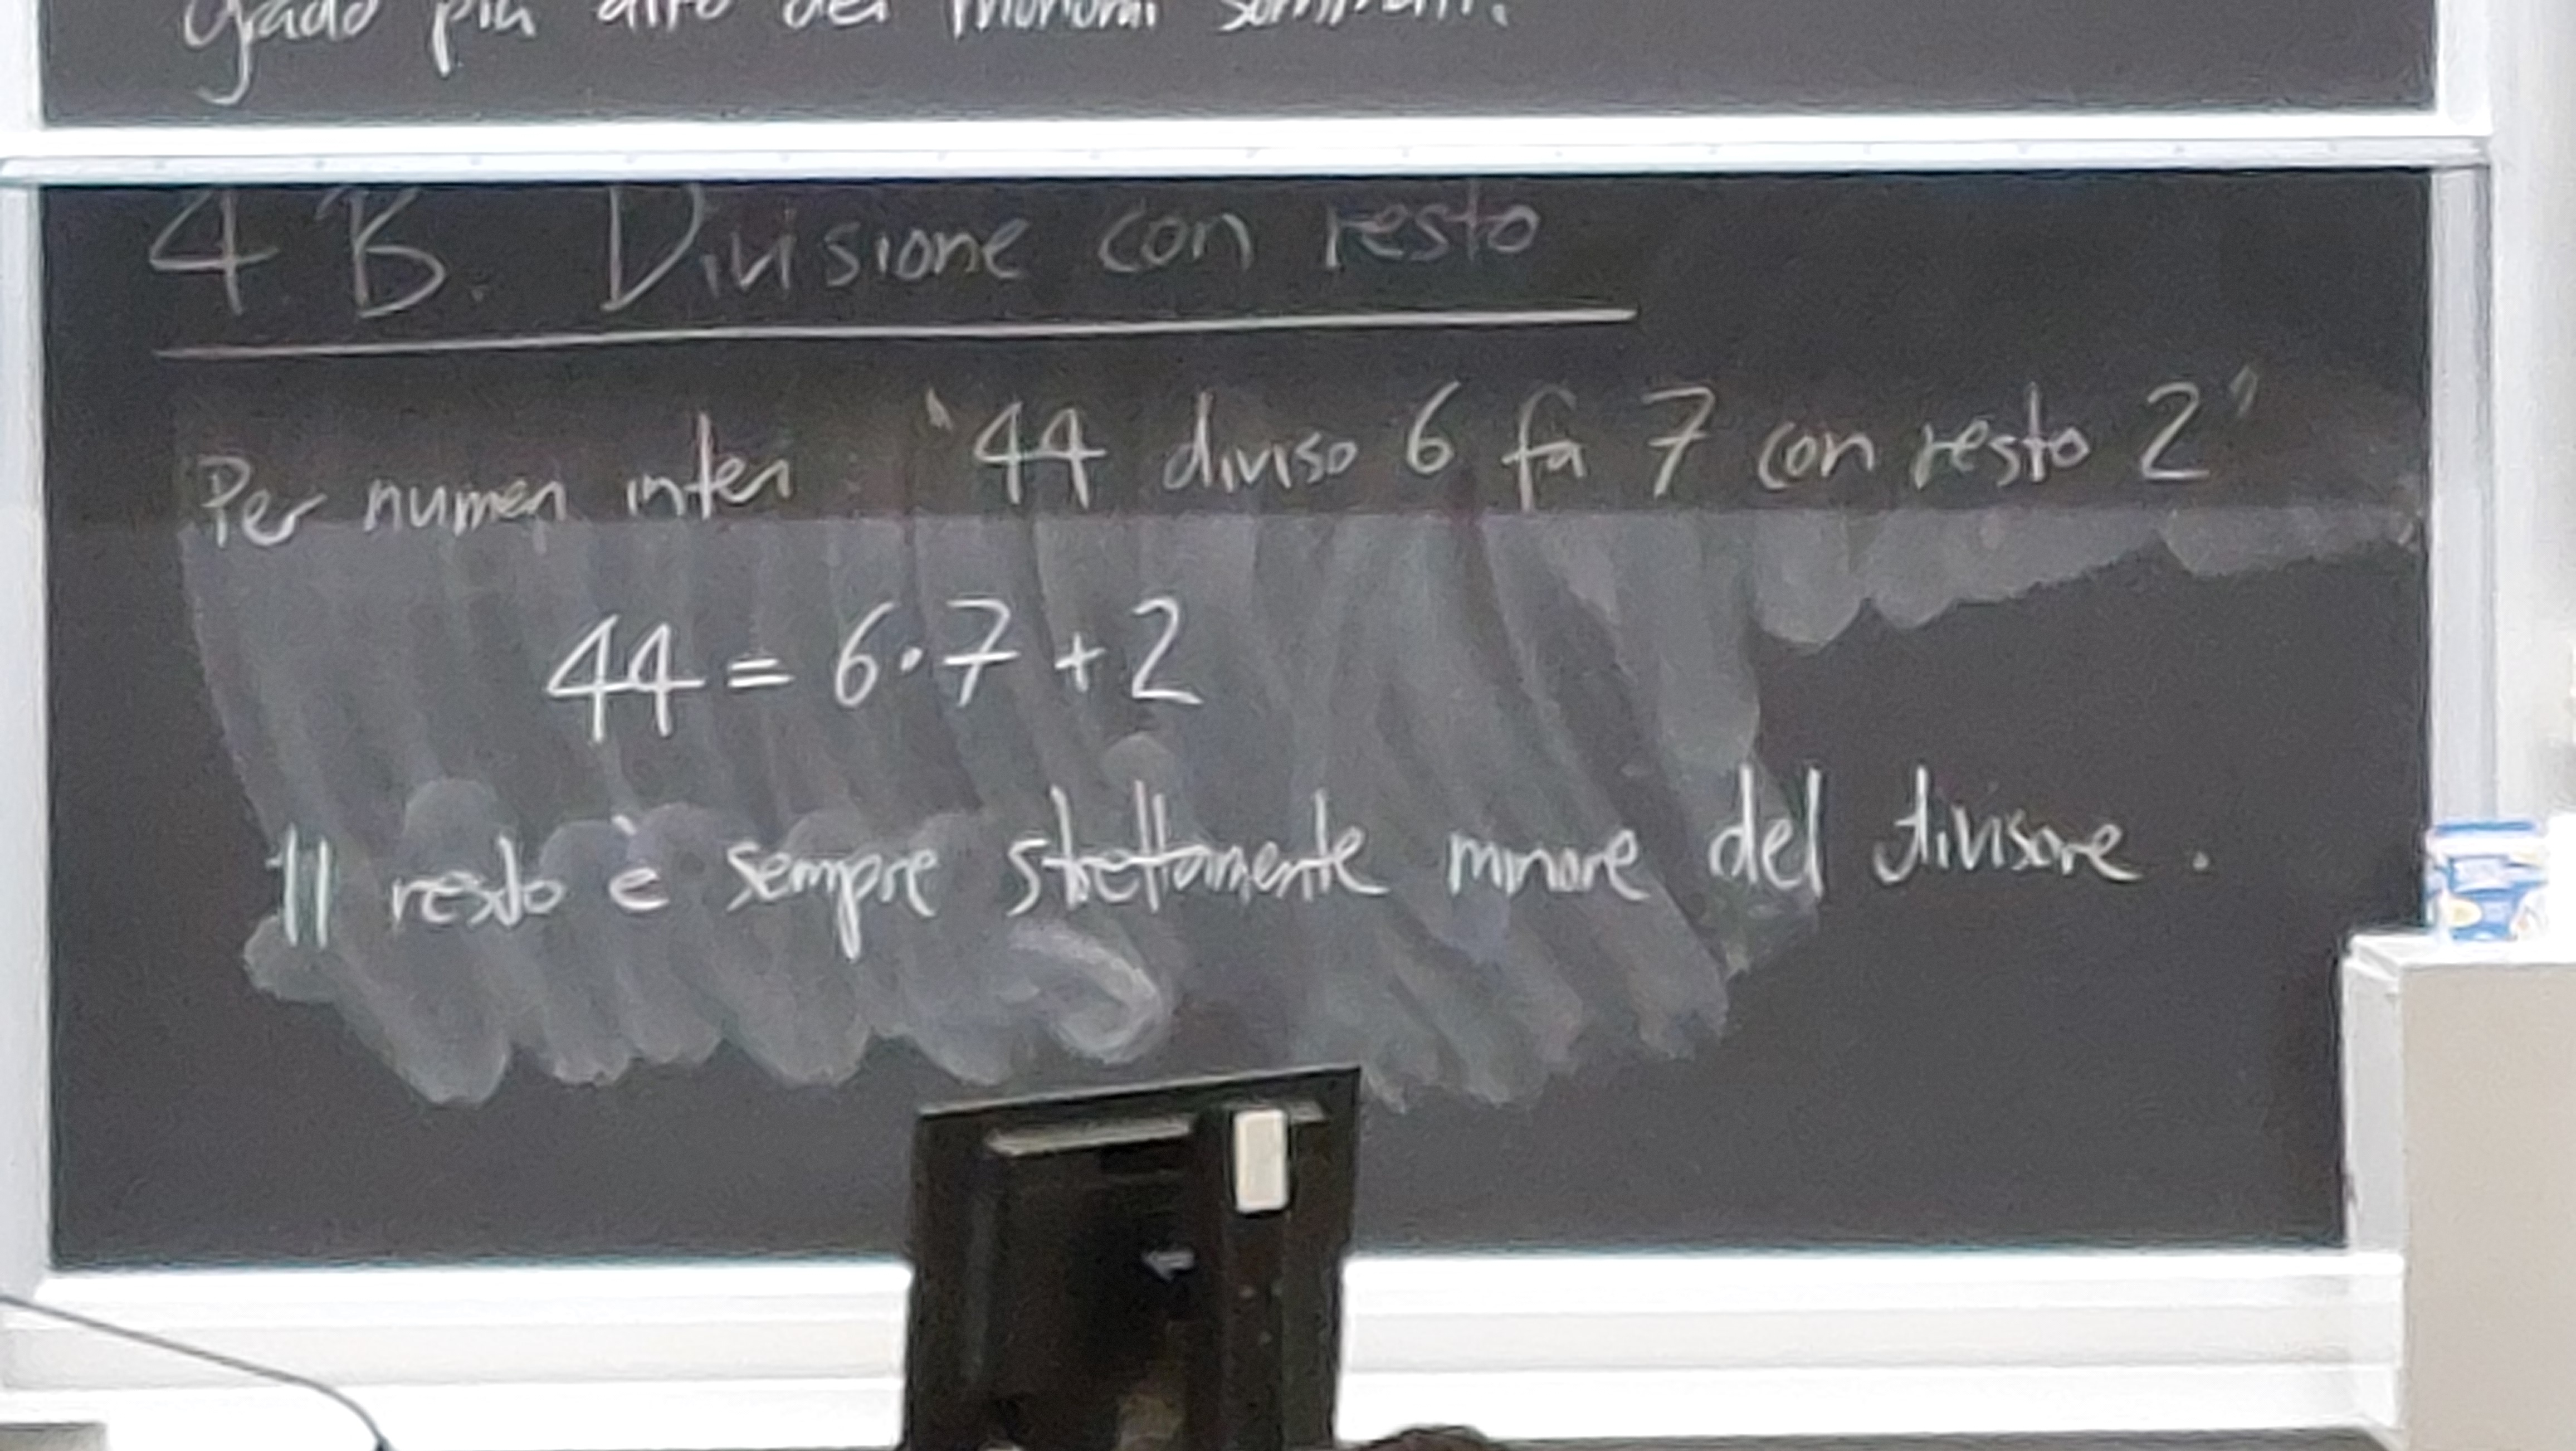 grado più alto dei monomi sommati.
4.B. Divisione con resto
Per numeri interi: "44 diviso 6 fa 7 con resto 2"
44 = 6·7 + 2
Il resto è sempre strettamente minore del divisore.